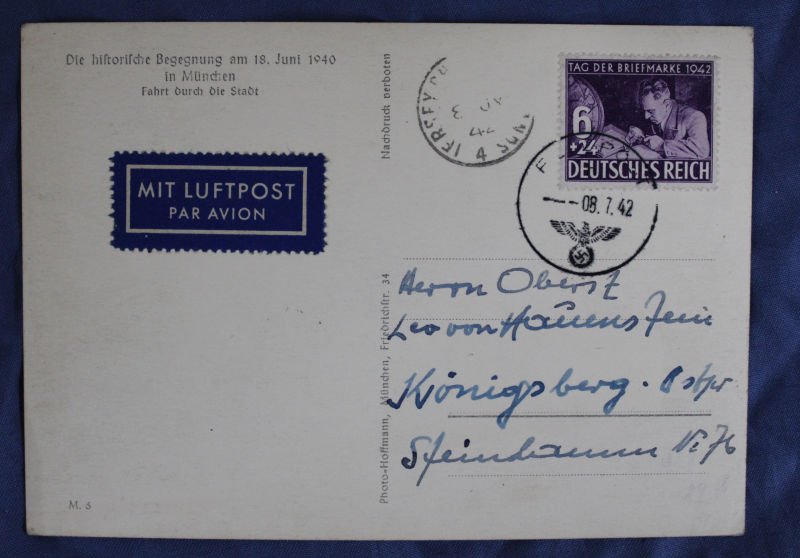 Die historische Begegnung am 18. Juni 1940
in München
Fahrt durch die Stadt
MIT LUFTPOST
PAR AVION
M. 5
Nachdruck verboten
Photo-Hoffmann, München, Friedrichstr. 34
JERSEY
42
4
TAG DER BRIEFMARKE 1942
6
+24
DEUTSCHES REICH
08.7.42
Herrn Oberst
Leo von Hauenstein
Königsberg. Ostpr
Steindamm Nr. 76